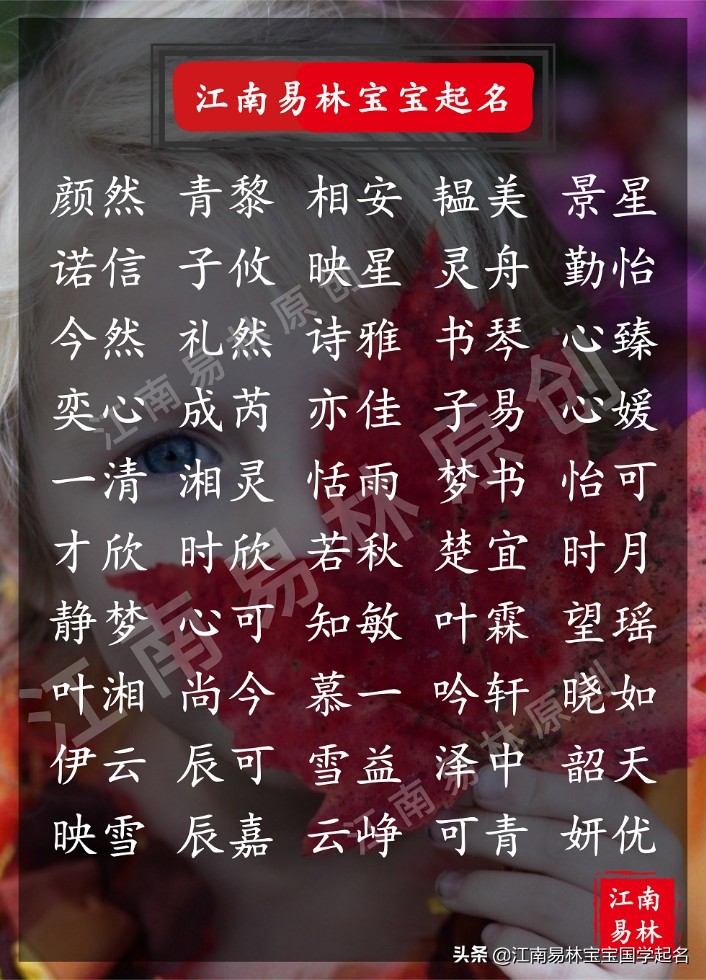 江南易林宝宝起名
颜然 青黎 相安 韫美 景星
诺信 子攸 映星 灵舟 勤怡
今然 礼然 诗雅 书琴 心臻
奕心 成芮 亦佳 子易 心媛
一清 湘灵 恬雨 梦书 怡可
才欣 时欣 若秋 楚宜 时月
静梦 心可 知敏 叶霖 望瑶
叶湘 尚今 慕一 吟轩 晓如
伊云 辰可 雪益 泽中 韶天
映雪 辰嘉 云峥 可青 妍优
江南易林原创
江南易林原创
江南易林原创
江南
易林
头条 @江南易林宝宝国学起名